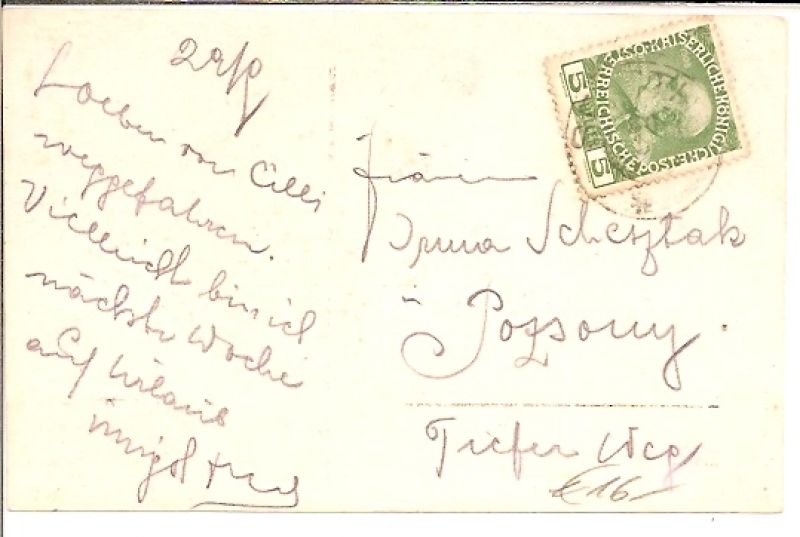 29/9
Soeben von Cilli
weggefahren.
Vielleicht bin ich
nächste Woche
auf Urlaub
innigst
Fräulein
Irma Schesztak
in Pozsony.
Tiefer Weg
€ 16-
KAISERLICHE KÖNIGLICHE ÖSTERREICHISCHE POST
5 5